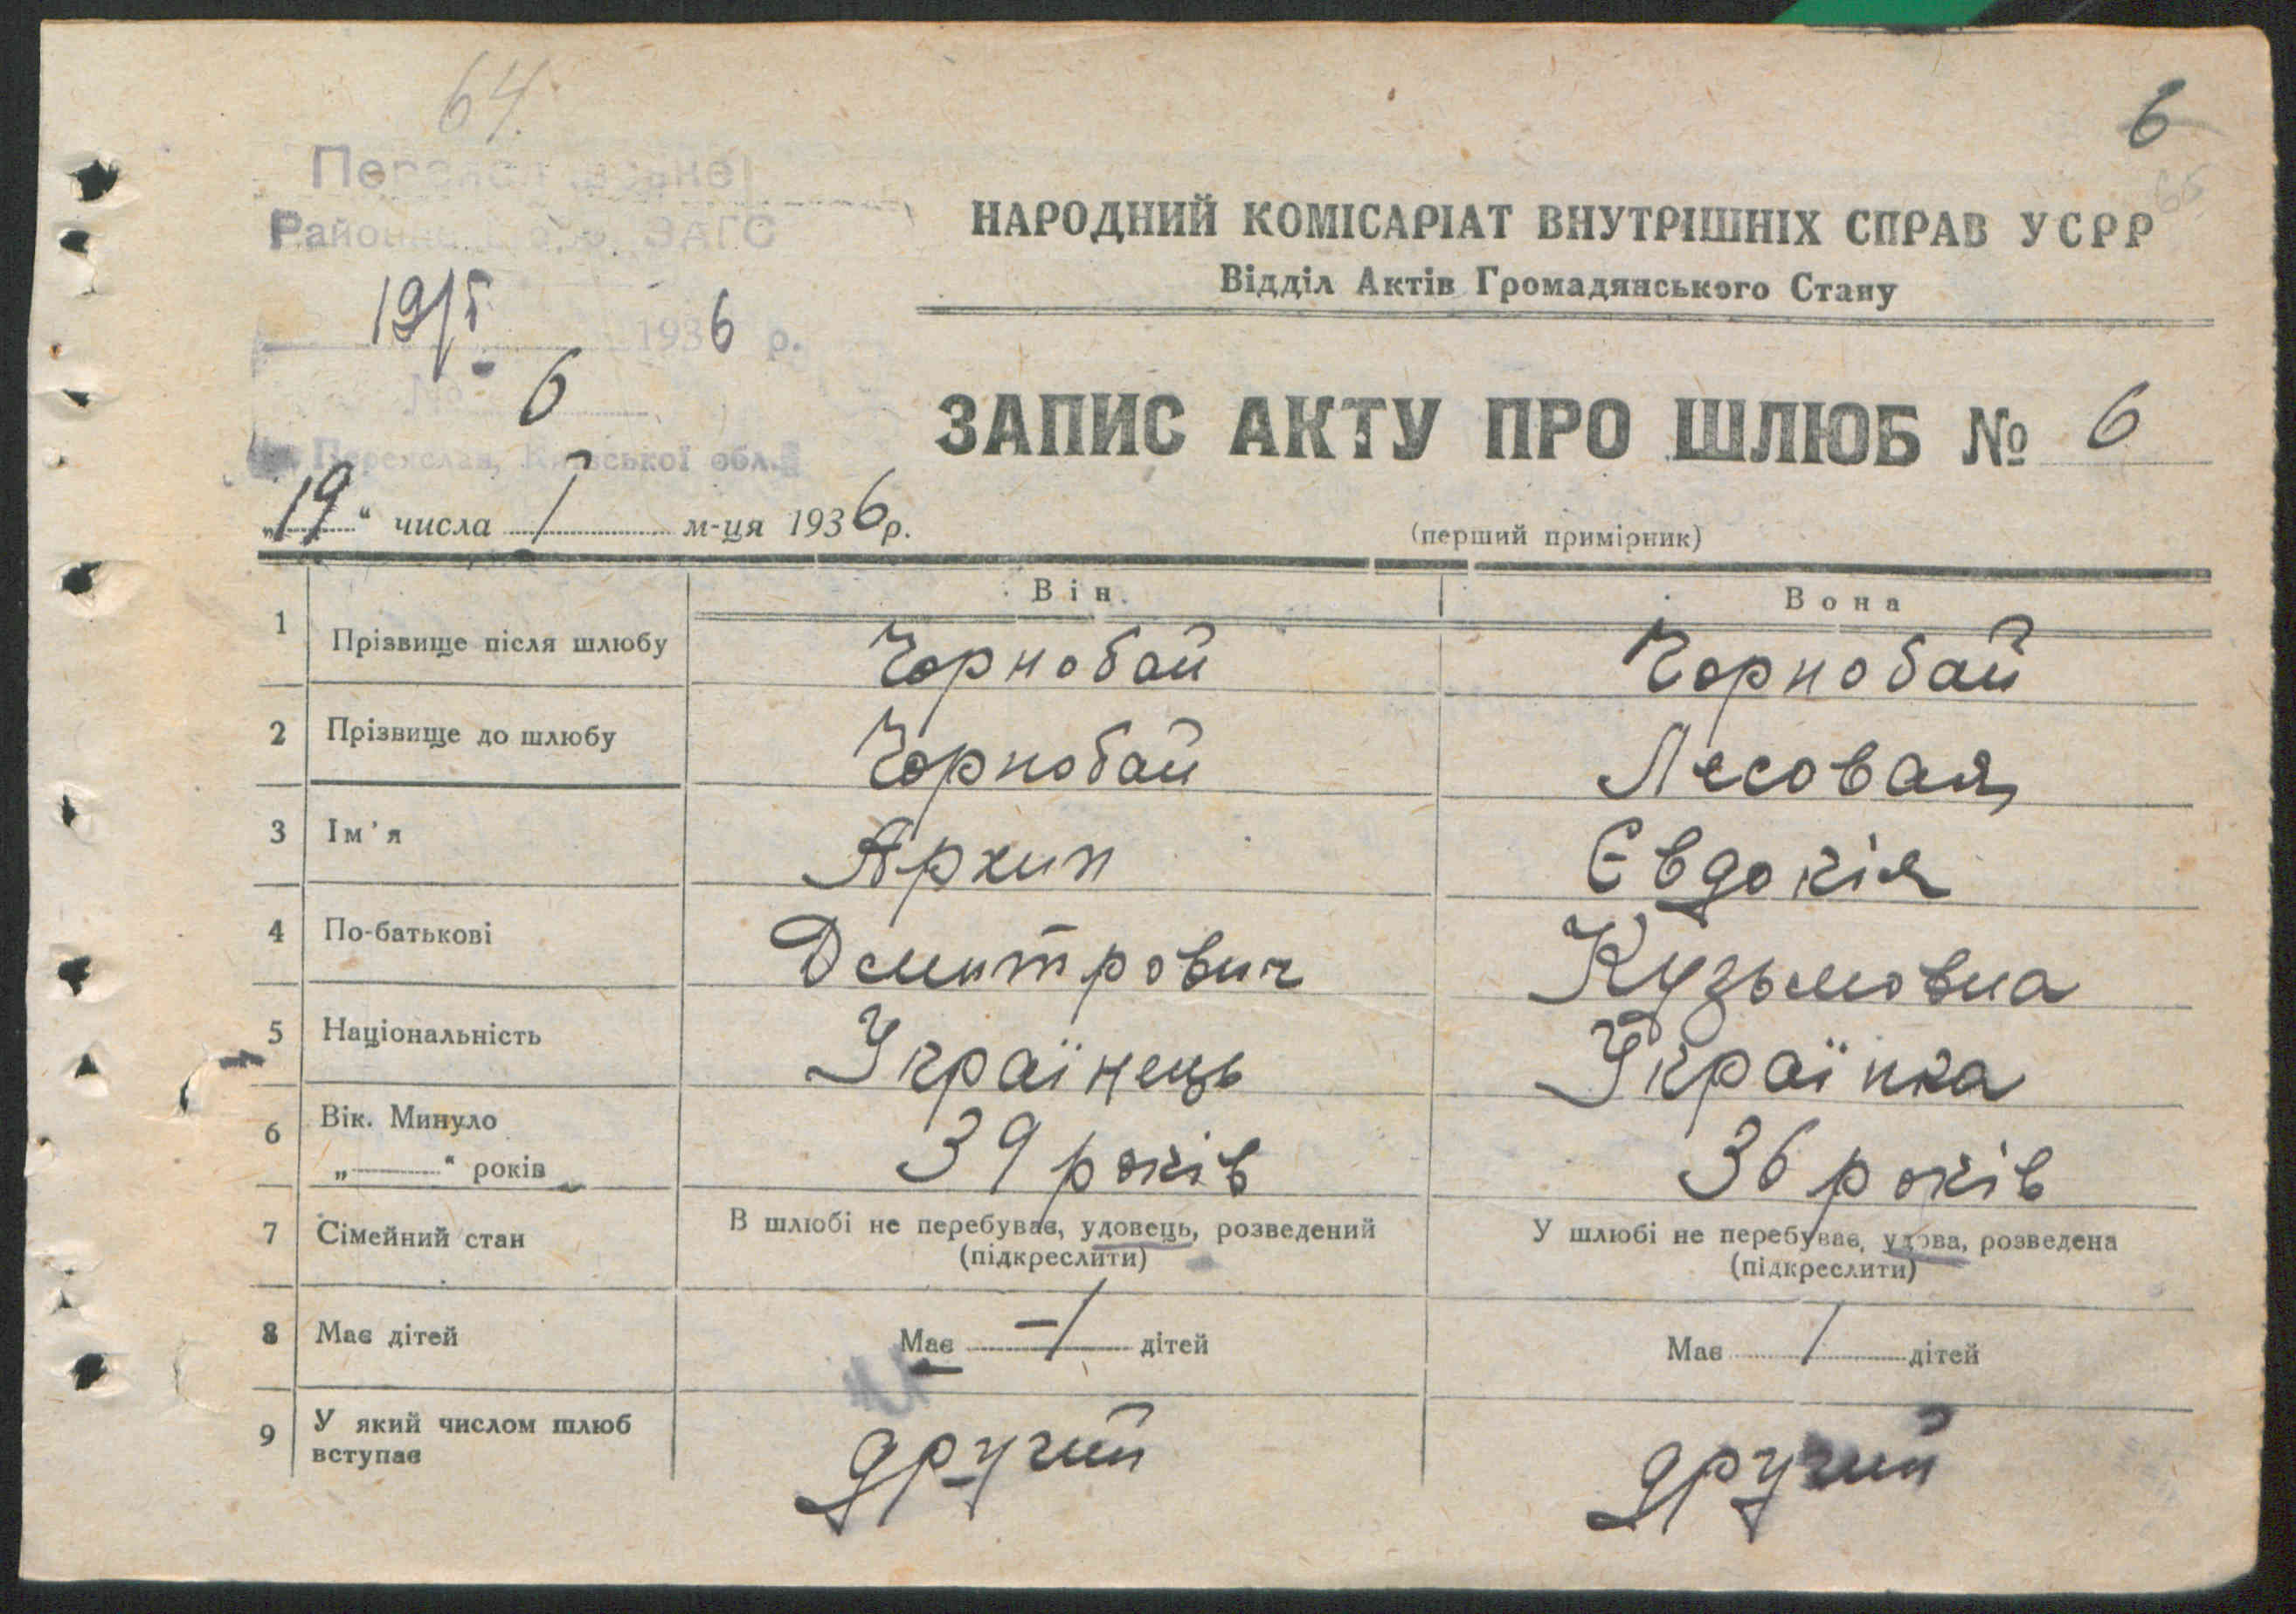 64.
6
66
Районне ЗАГС
НАРОДНИЙ КОМІСАРІАТ ВНУТРІШНІХ СПРАВ УСРР
Відділ Актів Громадянського Стану
19/I 1936 р.
№ 6
Переяслав, Київської обл.
ЗАПИС АКТУ ПРО ШЛЮБ № 6
„19“ числа I м-ця 1936 р.
(перший примірник)
Він
Вона
1 Прізвище після шлюбу Чорнобай Чорнобай
2 Прізвище до шлюбу Чорнобай Лесовая
3 Ім'я Архип Євдокія
4 По-батькові Дмитрович Кузьмовна
5 Національність Українець Українка
6 Вік. Минуло
„ “ років 39 років 36 років
7 Сімейний стан В шлюбі не перебував, удовець, розведений У шлюбі не перебував, удова, розведена
(підкреслити) (підкреслити)
8 Має дітей Має –/ дітей Має / дітей
9 У який числом шлюб
вступає другий другий